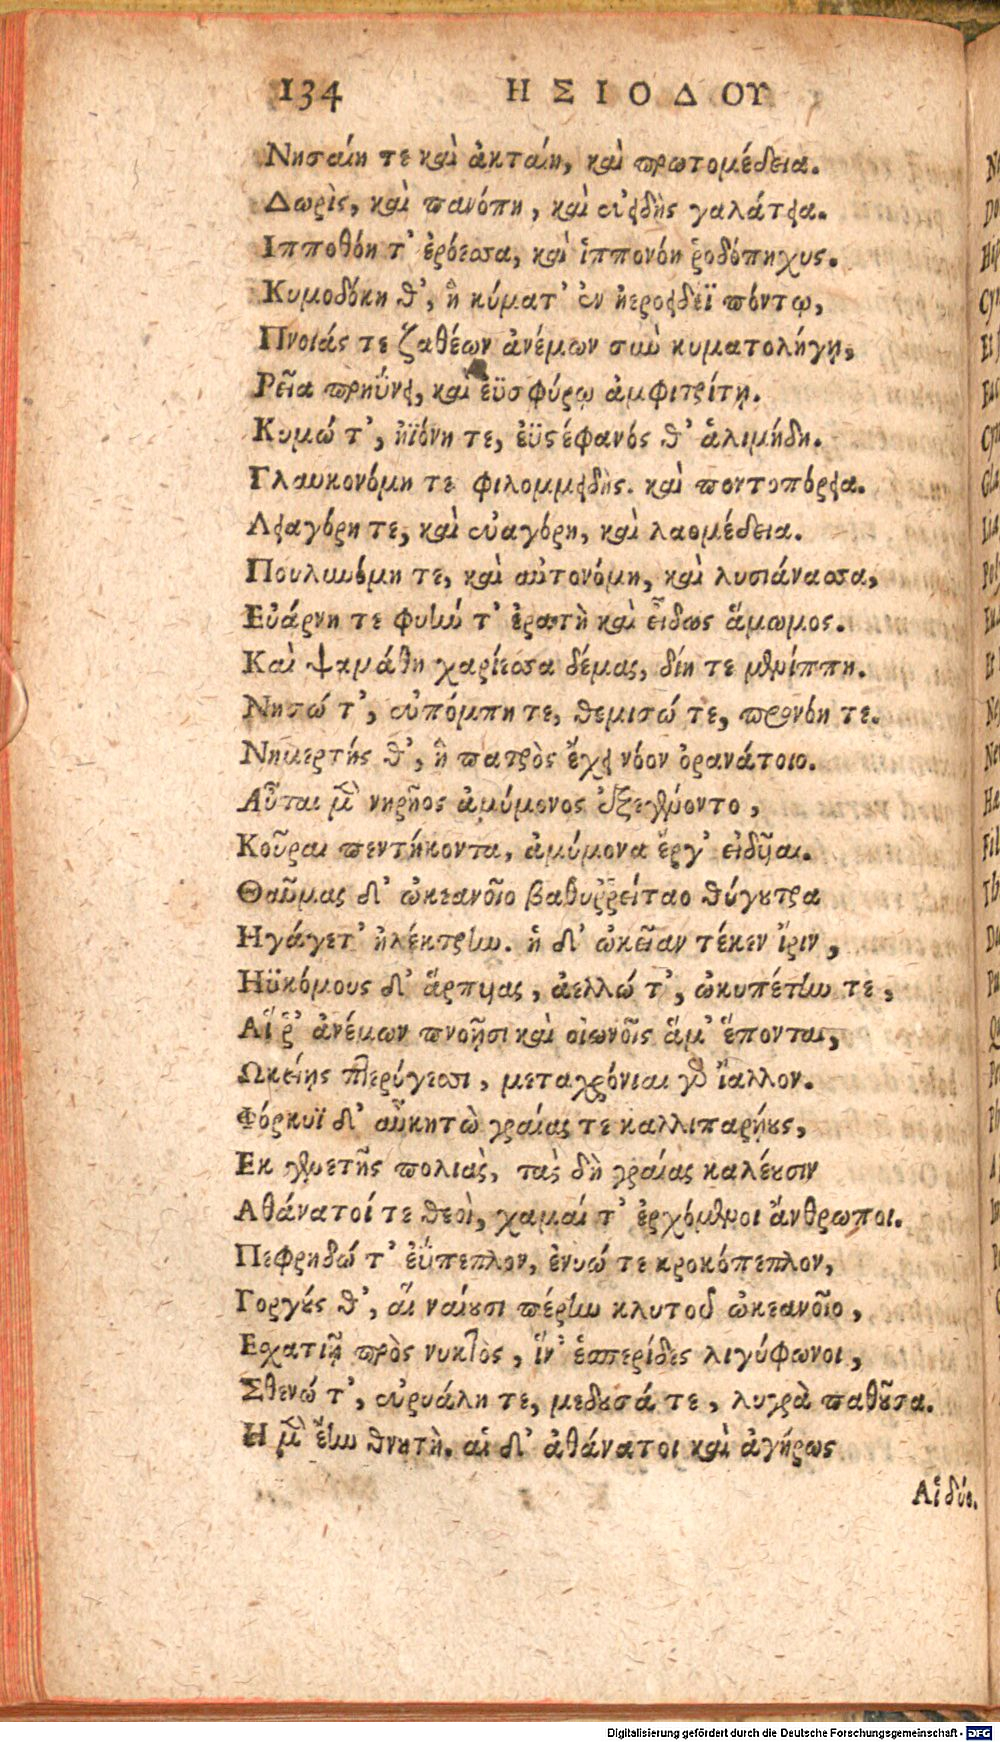 134 ΗΣΙΟΔΟΥ
Νησαίη τε καὶ ἀκταίη, καὶ πρωτομέδεια.
Δωρὶς, καὶ πανόπη, καὶ εὐειδὴς γαλάτεια.
Ιπποθόη τ' ἐρόεσσα, καὶ ἱππονόη ῥοδόπηχυς.
Κυμοδόκη θ', ἣ κύματ' ἐν ἠεροειδέϊ πόντῳ,
Πνοιάς τε ζαθέων ἀνέμων σιωὺ κυματολήγῃ,
Ρεῖα πρηΰνει, καὶ ἐϋσφύρῳ ἀμφιτρίτῃ.
Κυμώ τ', ἠϊόνη τε, ἐϋστέφανός θ' ἁλιμήδη.
Γλαυκονόμη τε φιλομμειδὴς. καὶ ποντοπόρεια.
Λειαγόρη τε, καὶ εὐαγόρη, καὶ λαομέδεια.
Πουλυνόμη τε, καὶ αὐτονόμη, καὶ λυσιάνασσα,
Εὐάρνη τε φυήν τ' ἐρατὴ καὶ εἶδως ἄμωμος.
Καὶ ψαμάθη χαρίεσσα δέμας, δίη τε μενίππη.
Νησώ τ', εὐπόμπη τε, θεμιστώ τε, προνόη τε.
Νημερτής θ', ἣ πατρὸς ἔχει νόον ἀθανάτοιο.
Αὗται μὲν νηρῆος ἀμύμονος ἐξεγένοντο,
Κοῦραι πεντήκοντα, ἀμύμονα ἔργ' εἰδῦιαι.
Θαῦμας δ' ὠκεανοῖο βαθυῤῥείταο θύγατρα
Ηγάγετ' ἠλέκτρην. ἡ δ' ὠκεῖαν τέκεν ἶριν,
Ηϋκόμους δ' ἅρπυιας, ἀελλώ τ', ὠκυπέτην τε,
Αἵ ῥ' ἀνέμων πνοῇσι καὶ οἰωνοῖς ἅμ' ἕπονται,
Ωκείῃς πτερύγεσσι, μεταχρόνιαι γὰρ ἴαλλον.
Φόρκυϊ δ' αὖ κητὼ γραίας τε καλλιπαρῄους,
Εκ γενετῆς πολιὰς, τὰς δὴ γραίας καλέουσιν
Αθάνατοί τε θεοὶ, χαμαί τ' ἐρχόμενοι ἄνθρωποι.
Πεφρηδώ τ' ἐΰπεπλον, ἐνυώ τε κροκόπεπλον,
Γοργούς θ', αἳ ναίουσι πέρην κλυτοῦ ὠκεανοῖο,
Εσχατιῇ πρὸς νυκτὸς, ἵν' ἑσπερίδες λιγύφωνοι,
Σθενώ τ', εὐρυάλη τε, μεδουσά τε, λυγρὰ παθοῦσα.
Η μὲν ἔην θνητὴ. αἱ δ' ἀθάνατοι καὶ ἀγήρως
Αἱ δύο.
Digitalisierung gefördert durch die Deutsche Forschungsgemeinschaft - DFG